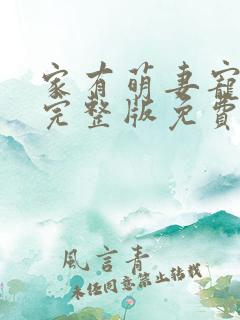 家有萌妻寵
完整版免費
風言青
未經同意禁止轉載